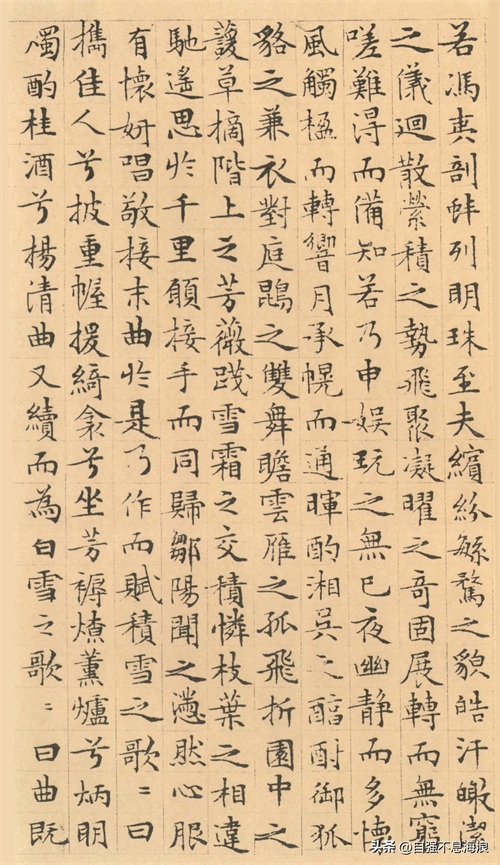 若馮夷剖蚌列明珠至夫繽紛緐騖之貌皓汗皦潔
之儀迴散縈積之勢飛聚凝曜之奇固展轉而無窮
嗟難得而備知若乃申娛玩之無已夜幽靜而多懷
風觸楹而轉響月承幌而通暉酌湘吳之醇酎御狐
貉之兼衣對庭鵾之雙舞瞻雲雁之孤飛折園中之
蘐草摘階上之芳薇踐雪霜之交積憐枝葉之相違
馳遙思於千里願接手而同歸鄒陽聞之懣然心服
有懷妍唱敬接末曲於是乃作而賦積雪之歌〻曰
攜佳人兮披重幄援綺衾兮坐芳褥燎薰爐兮炳明
燭酌桂酒兮揚清曲又續而為白雪之歌〻曰曲既
头条 @自强不息海浪